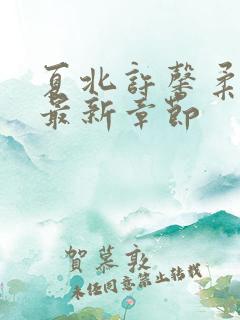 夏北許馨柔
最新章節
賀慕敦
未经同意禁止转载